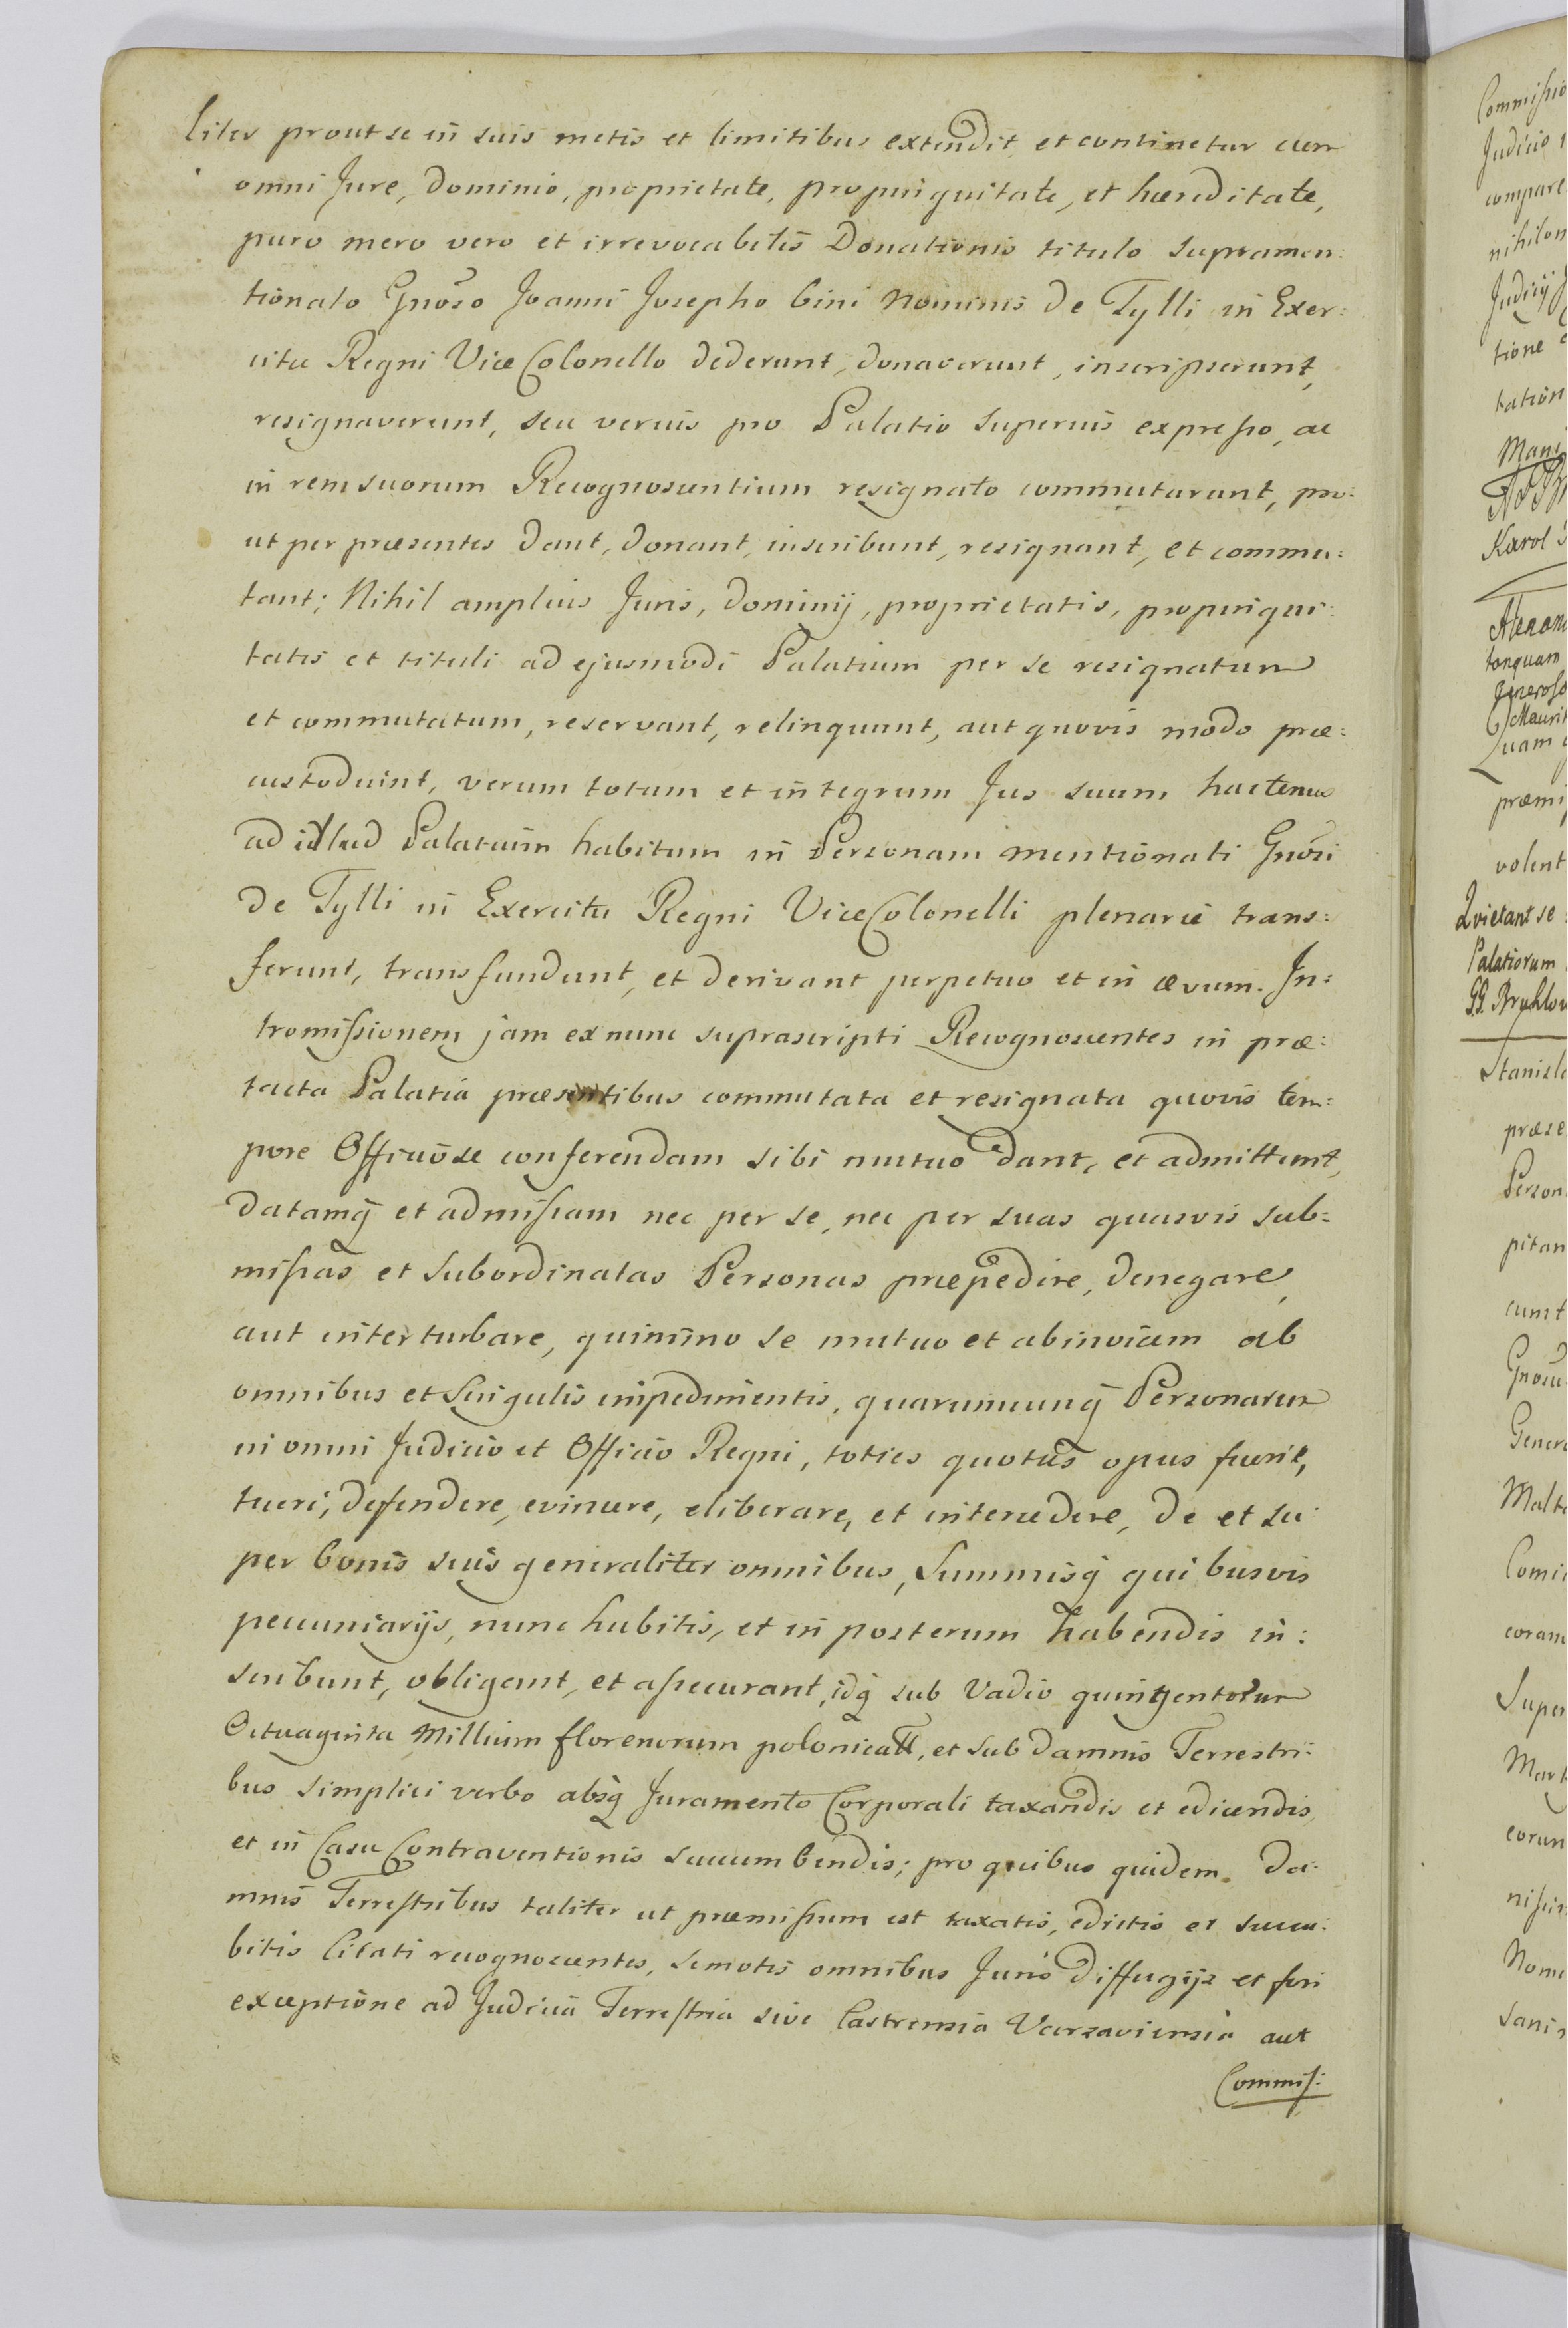 liter prout se in suis metis et limitibus extendit, et continetur cum
omni Jure, dominio, proprietate, propinquitate, et hæreditate,
puro mero vero et irrevocabilis Donationis titulo supramen:
tionato Gnõso Joanni Josepho bini Nominis de Tylli in Exer:
citu Regni Vice Colonello dederunt, donaverunt, inscripserunt,
resignaverunt, seu verius pro Palatio superius expresso, ac
in rem suorum Recognoscentium resignato commutarunt, pro:
ut per præsentes dant, donant, inscribunt, resignant, et commu:
tant; Nihil amplius Juris, dominij, proprietatis, propinqui:
tatis et tituli ad ejusmodi Palatium per se resignatum
et commutatum, reservant, relinquunt, aut quovis modo præ:
custodiunt, verum totum et integrum Jus suum hactenus
ad illud Palatium habitum in Personam mentionati Gnõsi
de Tylli in Exercitu Regni Vice Colonelli plenarie trans:
ferunt, transfundunt, et derivant perpetuo et in ævum. In:
tromissionem jam ex nunc suprascripti Recognoscentes in præ:
tacta Palatia præsentibus commutata et resignata quovis tem:
pore Officiose conferendam sibi mutuo dant, et admittunt,
datamq̃ et admissam nec per se, nec per suas quasvis sub:
missas et subordinatas Personas præpedire, denegare,
aut interturbare, quinimo se mutuo et abinvicem ab
omnibus et singulis impedimentis, quarumcunq̃ Personarum
in omni Judicio et Officio Regni, toties quoties opus fuerit,
tueri, defendere, evincere, eliberare, et intercedere, de et su
per bonis suis generaliter omnibus, Summisq̃ quibusvis
pecuniarijs, nunc habitis, et in posterum habendis in:
scribunt, obligant, et assecurant, idq̃ sub Vadio quingentorum
Octuaginta Millium florenorum polonicall, et sub damnis Terrestri:
bus simplici verbo absq̃ Juramento Corporali taxandis et edicendis,
et in Casu Contraventionis succumbendis; pro quibus quidem da:
mnis Terrestribus taliter ut præmissum est taxatis, edictis et succu:
bitis Citati recognoscentes, semotis omnibus Juris diffugijs et fori
exceptione ad Judicia Terrestria sive Castrensia Varsaviensia aut
Commis:
Commissio
Judicio
compare
nihilom
Judicij
tione
tation
Karol
tanquam
Generoso
Maurit
Quam
præmi
volent
Quietant se
Palatiorum
GG. Bruhlow
Stanisla
præse
Person
pitan
cunt
Gnosu
Genera
Malt
Comi
coram
Super
Mar
eorum
nissim
Nomi
sani